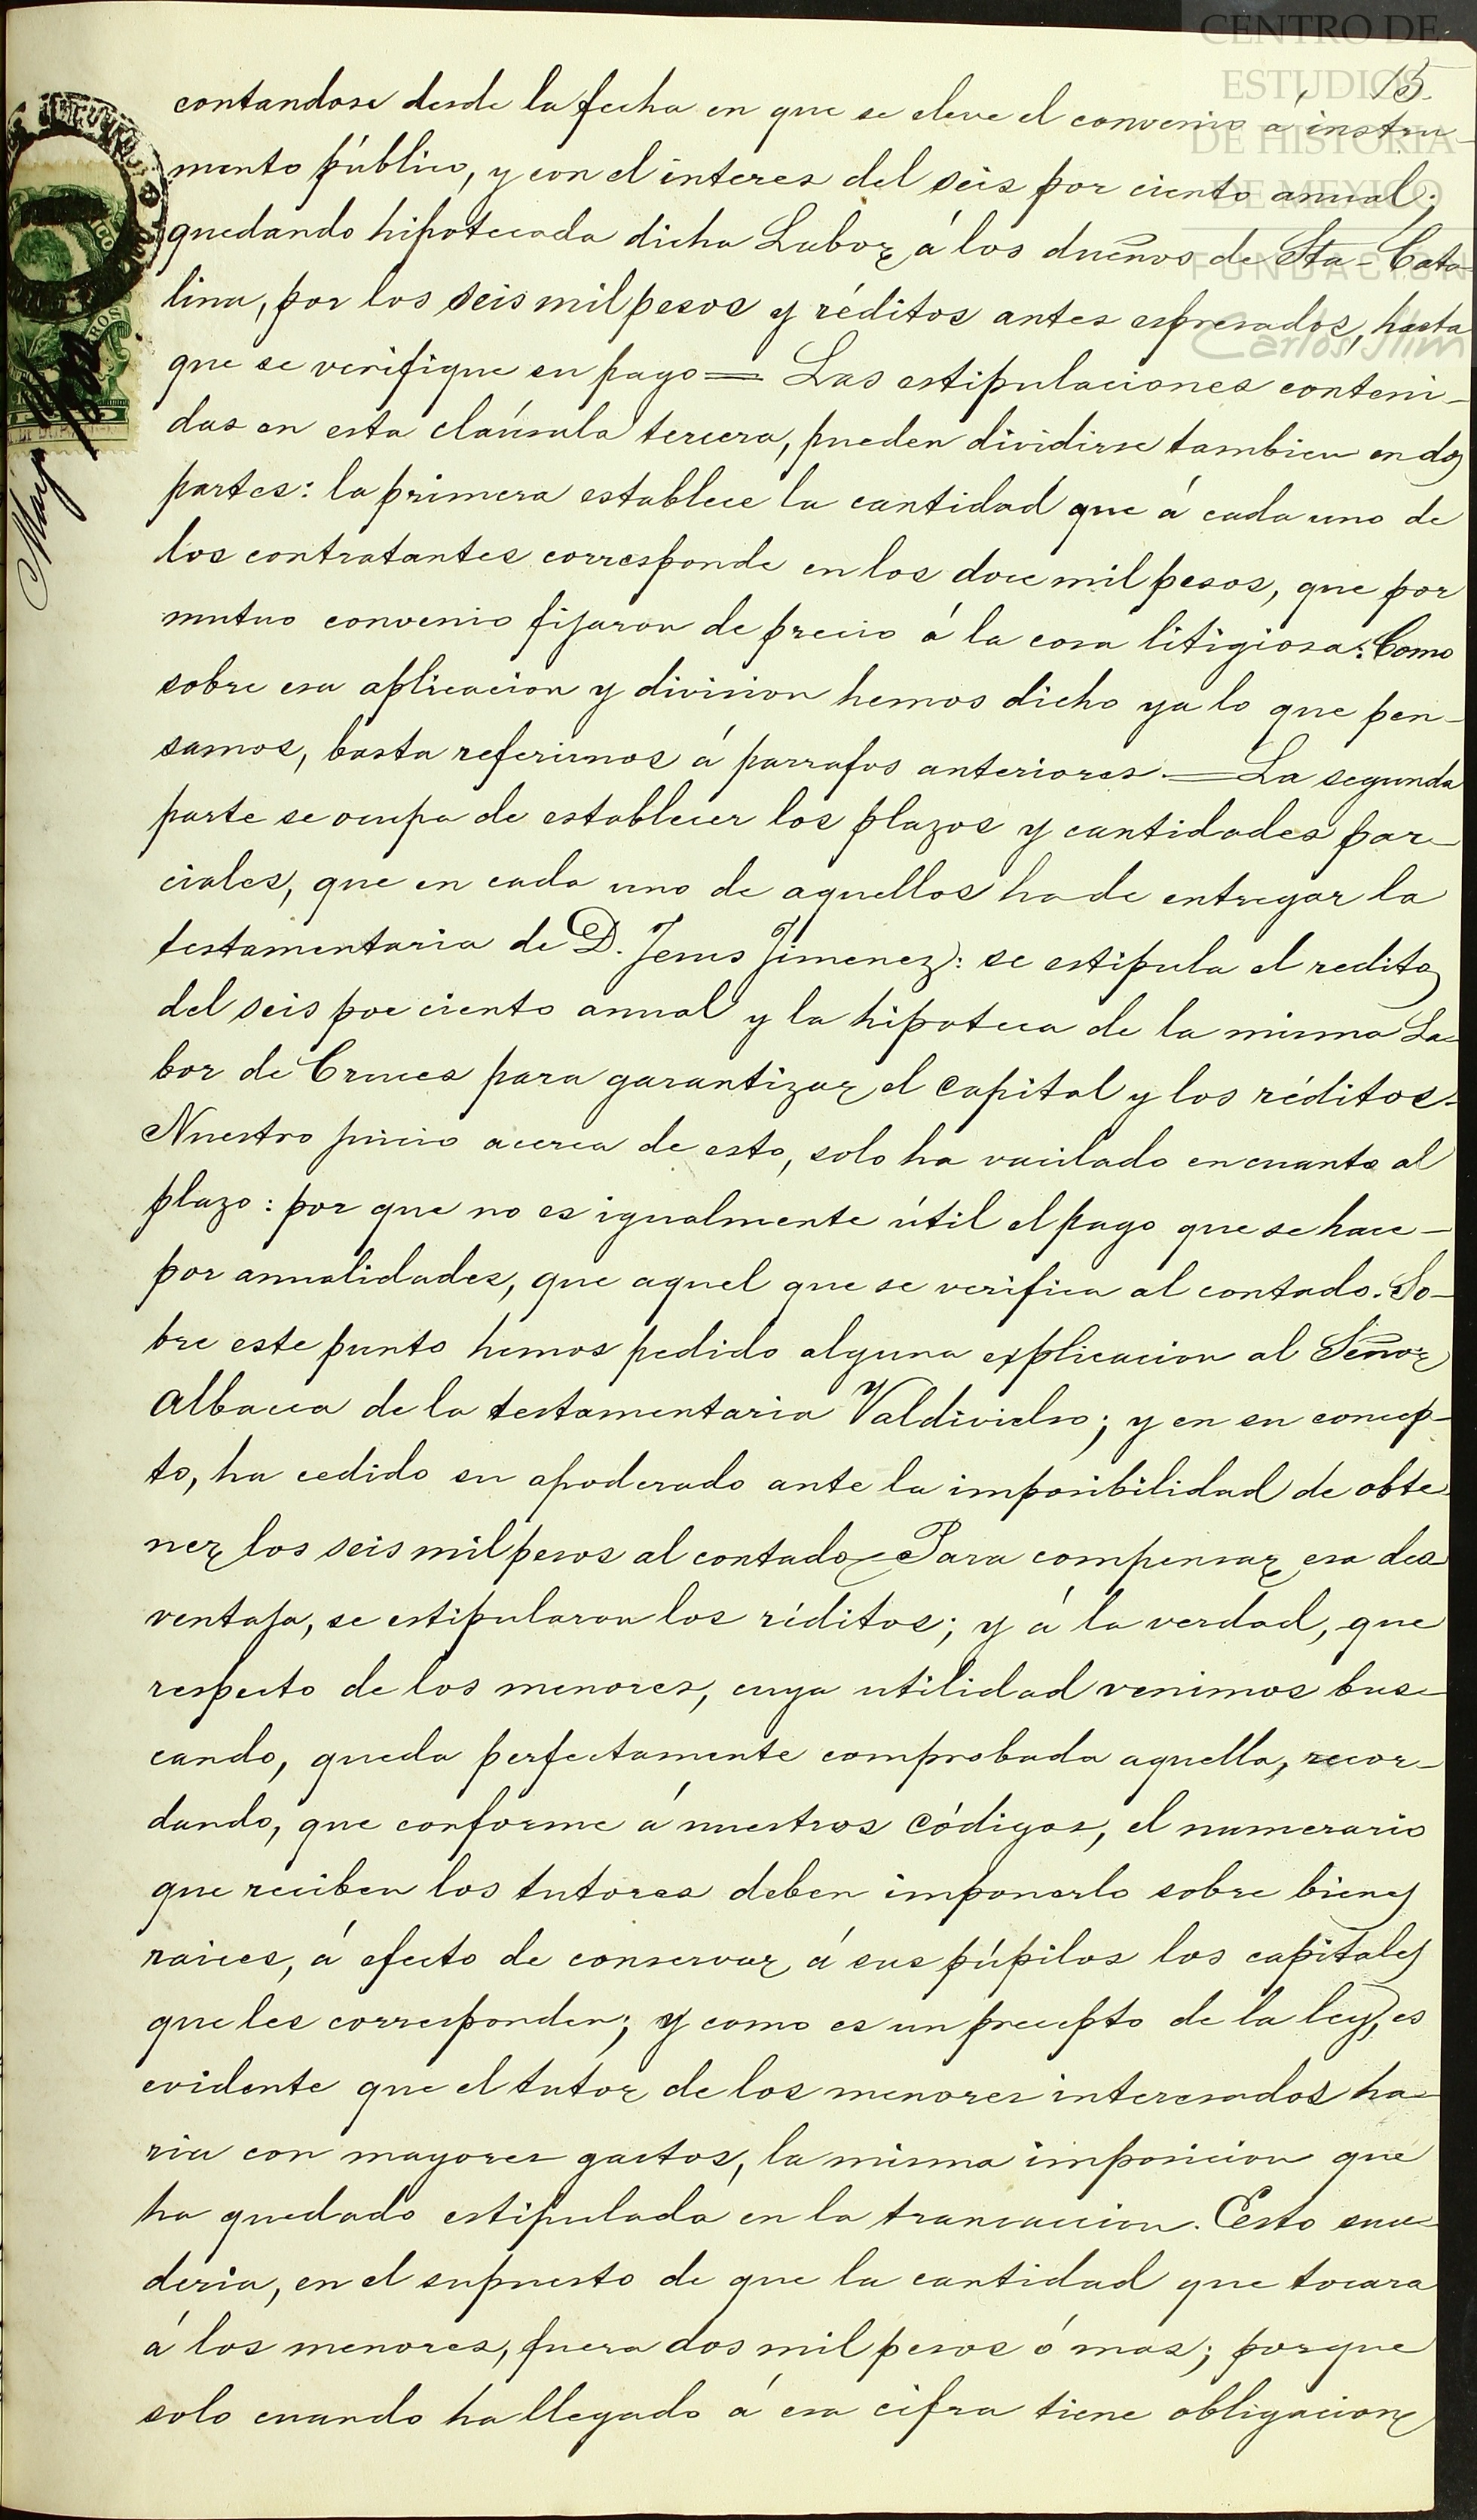 CENTRO DE
ESTUDIOS
DE HISTORIA
DE MEXICO
FUNDACION
Carlos Slim
15.
contandose desde la fecha en que se eleve el convenio á instru-
mento público, y con el interes del seis por ciento anual;
quedando hipotecada dicha Labor á los dueños de Sta. Cata-
lina, por los seis mil pesos y réditos antes espresados, hasta
que se verifique su pago = Las estipulaciones conteni-
das en esta cláusula tercera, pueden dividirse tambien en dos
partes: la primera establece la cantidad que á cada uno de
los contratantes corresponde en los doce mil pesos, que por
mutuo convenio fijaron de precio á la cosa litigiosa: Como
sobre esa aplicacion y division hemos dicho ya lo que pen-
samos, basta referirnos á parrafos anteriores. = La segunda
parte se ocupa de establecer los plazos y cantidades par-
ciales, que en cada uno de aquellos ha de entregar la
testamentaria de D. Jesus Jimenez: se estipula el redito
del seis por ciento anual y la hipoteca de la misma La-
bor de Cruces para garantizar el capital y los réditos.
Nuestro juicio acerca de esto, solo ha vacilado en cuanto al
plazo: por que no es igualmente útil el pago que se hace-
por anualidades, que aquel que se verifica al contado. So-
bre este punto hemos pedido alguna explicacion al Señor
Albacea de la testamentaria Valdivielso; y en su concep-
to, ha cedido su apoderado ante la imposibilidad de obte-
ner los seis mil pesos al contado = Para compensar esa des-
ventaja, se estipularon los réditos; y á la verdad, que
respecto de los menores, cuya utilidad venimos bus-
cando, queda perfectamente comprobada aquella, recor-
dando, que conforme á nuestros Códigos, el numerario
que reciben los tutores deben imponerlo sobre bienes
raices, á efecto de conservar á sus púpilos los capitales
que les corresponden; y como es un precepto de la ley, es
evidente que el tutor de los menores interesados ha-
ria con mayores gastos, la misma imposicion que
ha quedado estipulada en la transaccion. Esto suce-
deria, en el supuesto de que la cantidad que tocara
á los menores, fuera dos mil pesos ó mas; porque
solo cuando ha llegado á esa cifra tiene obligacion